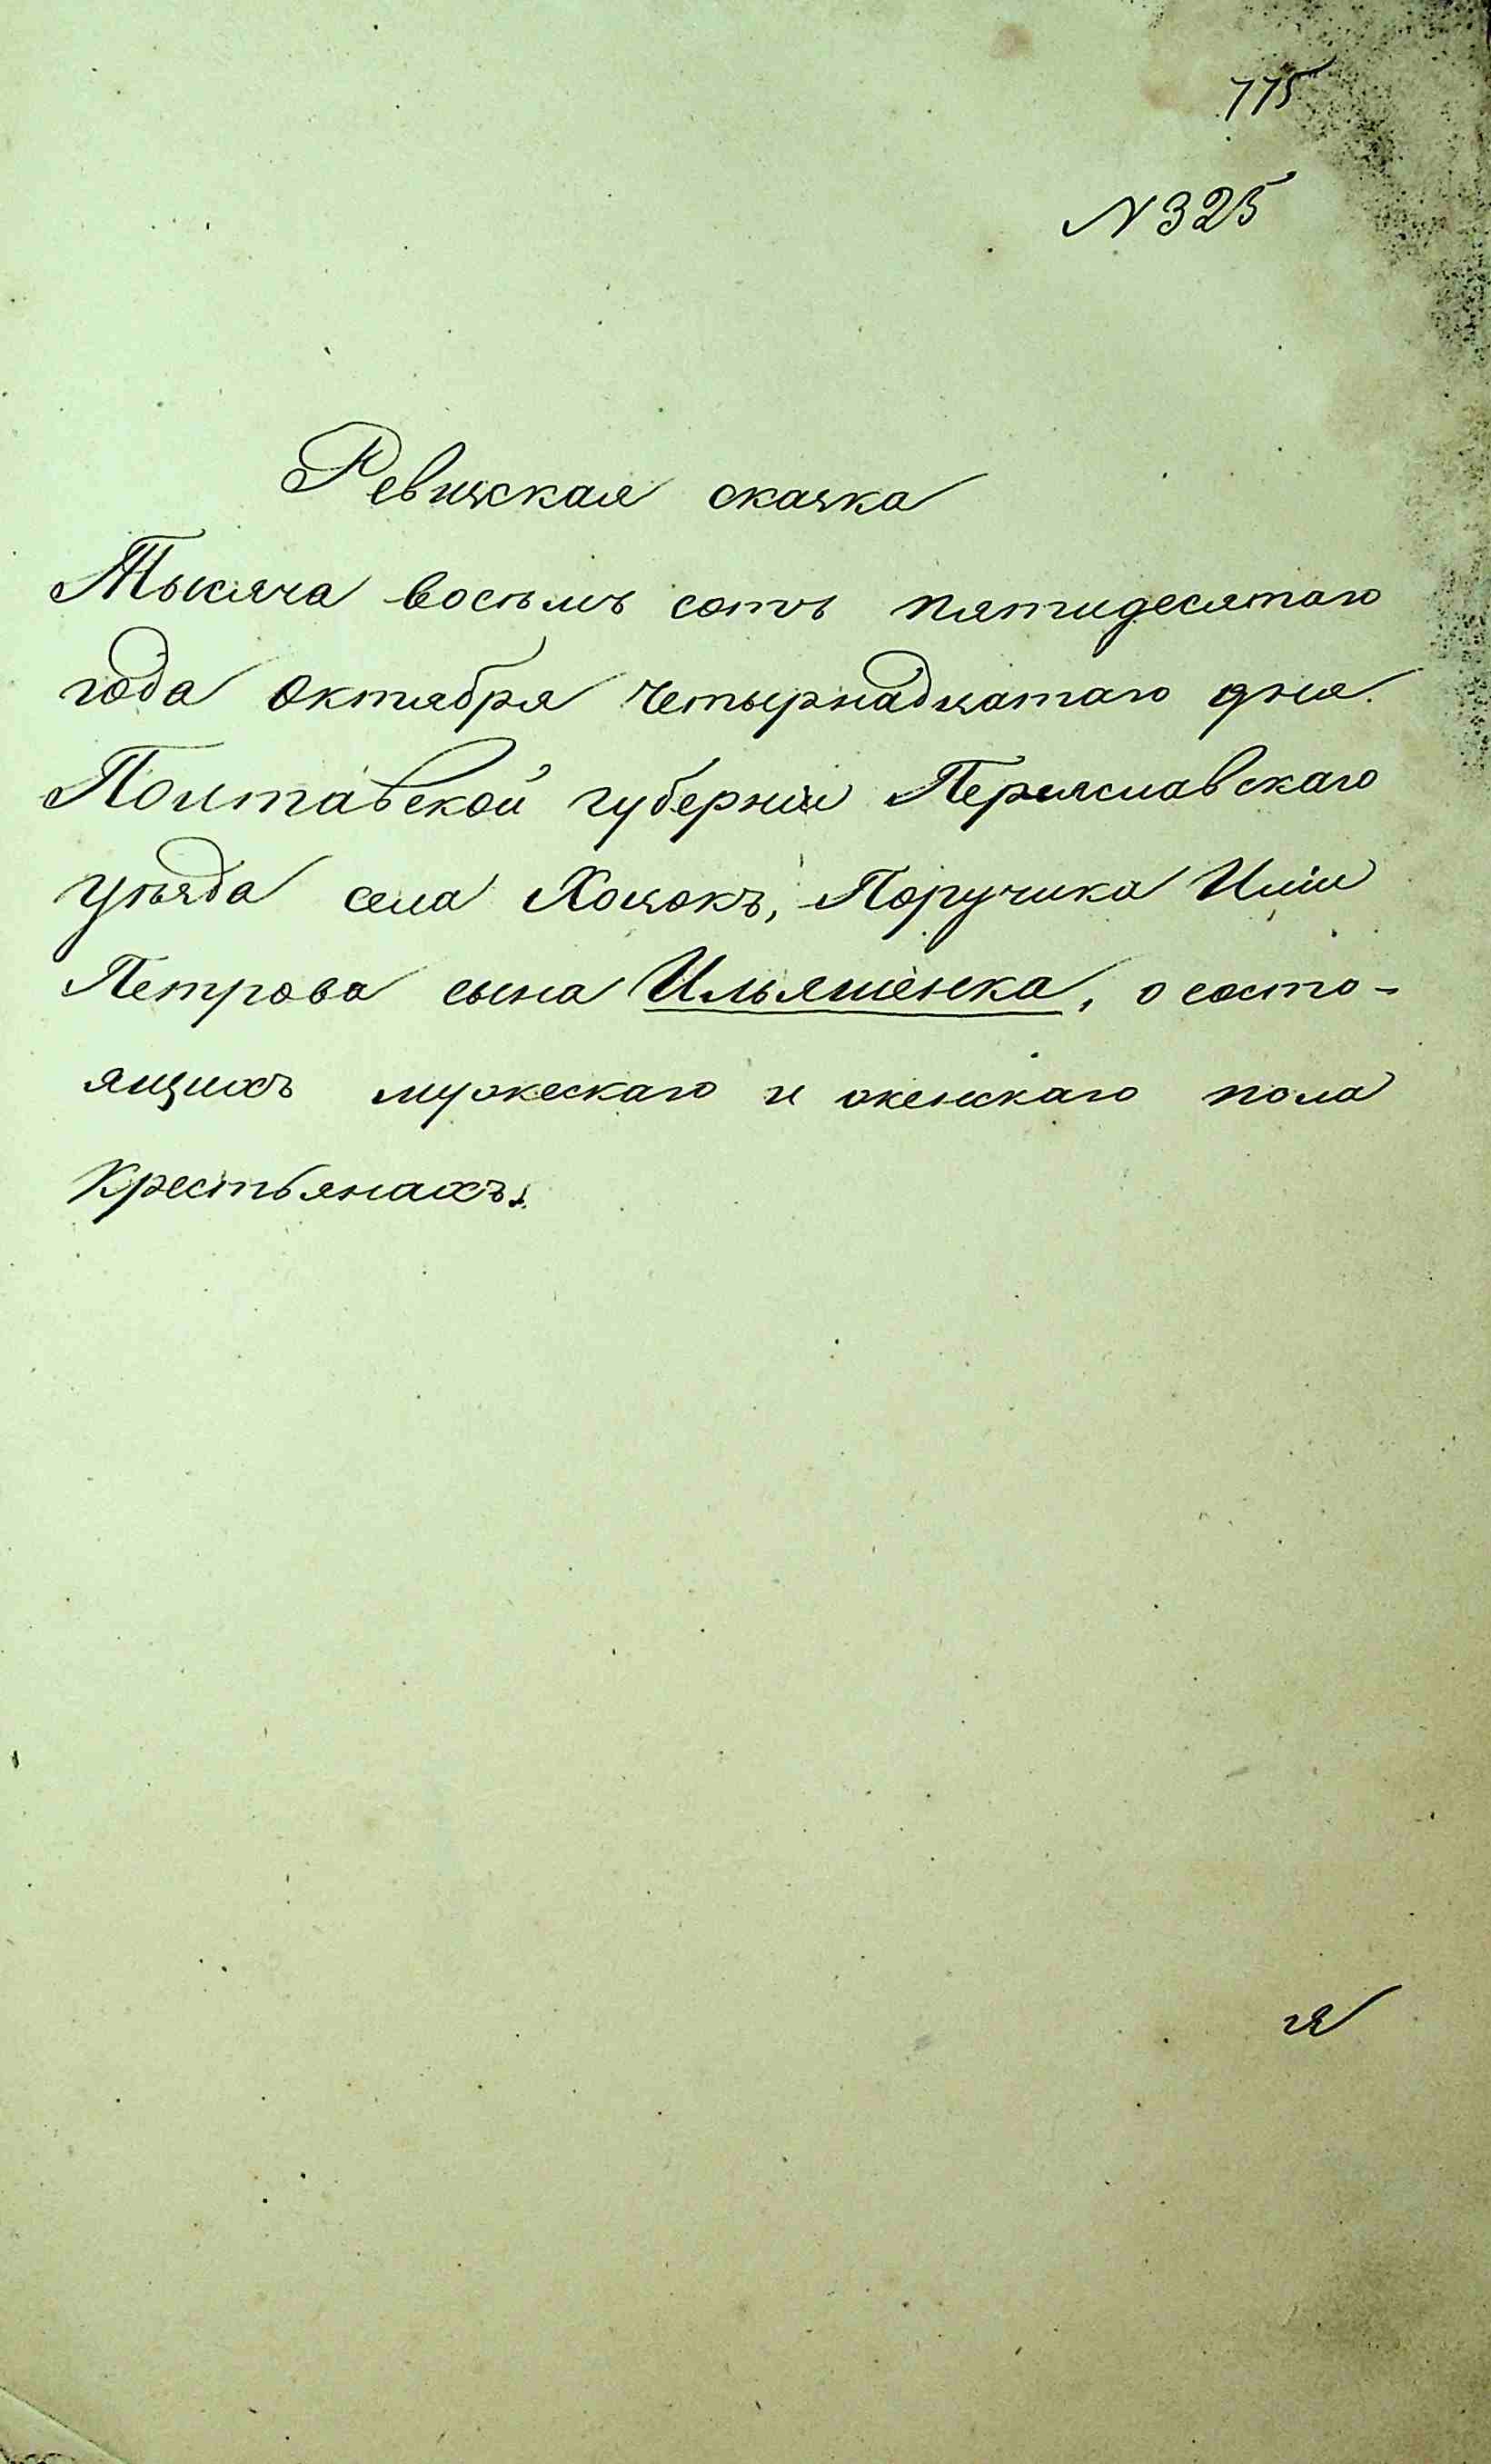 775
N 325
Ревизская сказка
Тысяча восемь сотъ пятидесятаго
года Октября четырнадцатаго дня.
Полтавской губерніи Переяславскаго
уѣзда села Хоцокъ, Поручика Иліи
Петрова сына Ильяшенка, о состо-
ящихъ мужескаго и женскаго пола
крестьянахъ.